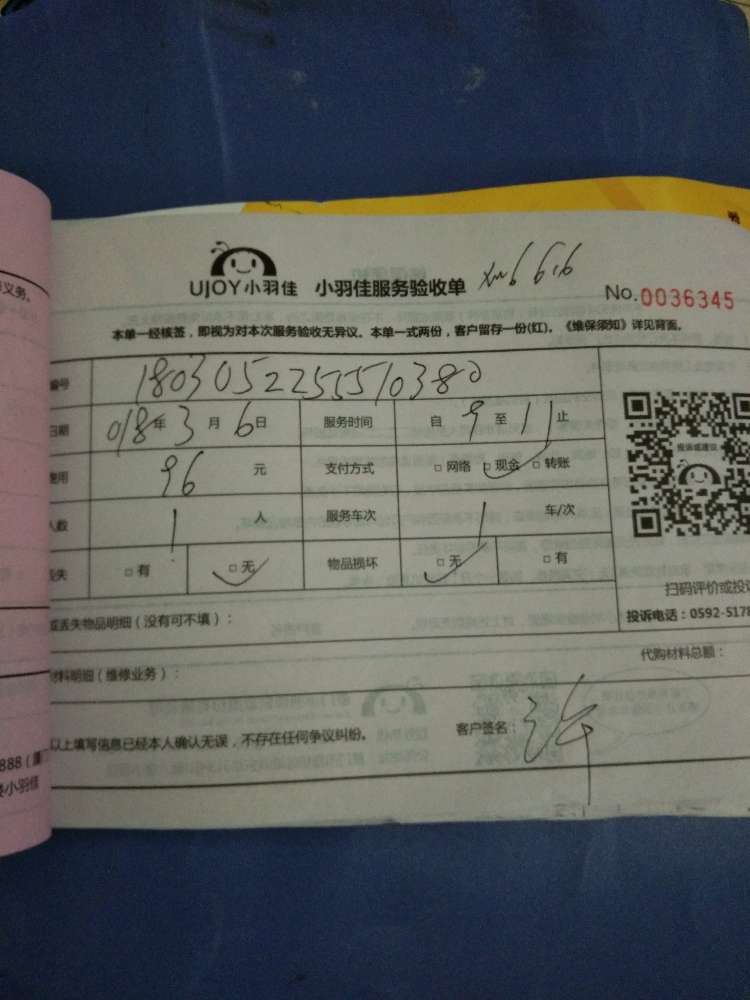 义务。
UJOY小羽佳 小羽佳服务验收单 xm6616
No.0036345
本单一经核签，即视为对本次服务验收无异议。本单一式两份，客户留存一份(红)。《维保须知》详见背面。
编号 1803052255510380
日期 018年3月6日 服务时间 自9至11止
费用 96元 支付方式 □网络 □现金 □转账
人数 1人 服务车次 1车/次
丢失 □有 □无 物品损坏 □无 □有
投诉或建议
扫码评价或投诉
投诉电话：0592-5178
或丢失物品明细（没有可不填）：
代购材料总额：
材料明细（维修业务）：
以上填写信息已经本人确认无误，不存在任何争议纠纷。 客户签名：许
888（厦
小羽佳